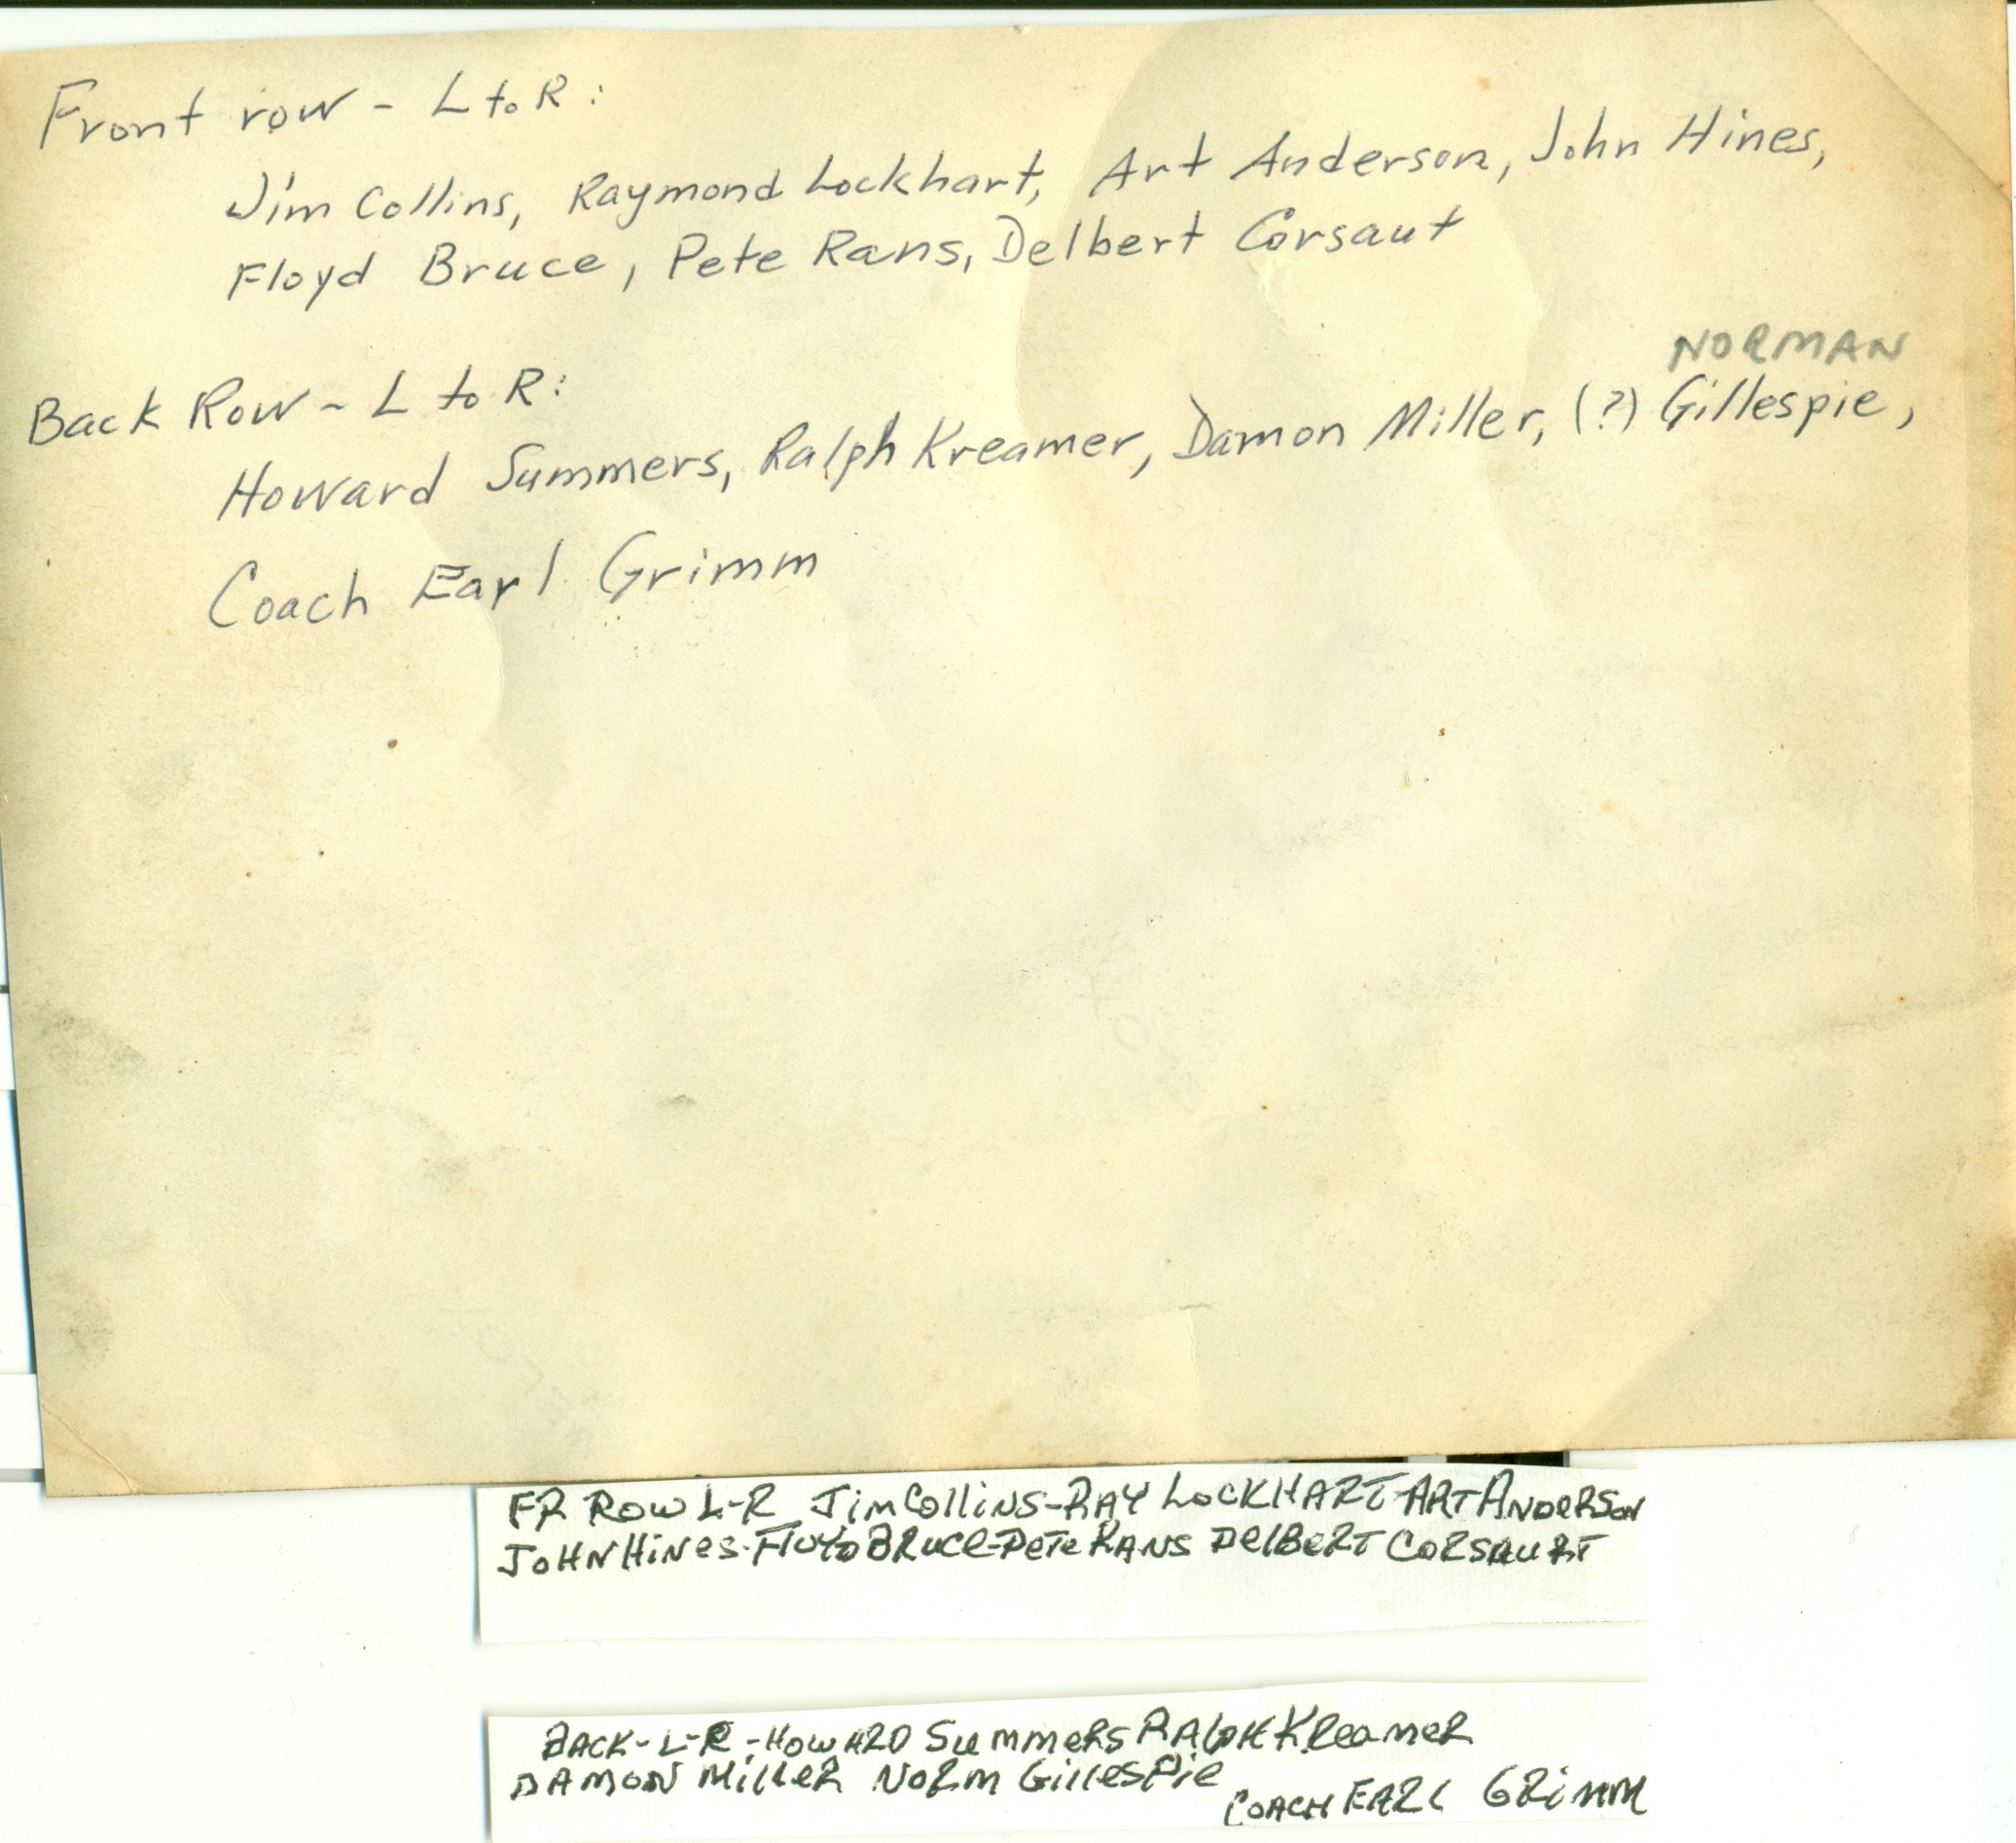 Front row - L to R:
Jim Collins, Raymond Lockhart, Art Anderson, John Hines,
Floyd Bruce, Pete Rans, Delbert Corsaut
NORMAN
Back Row - L to R:
Howard Summers, Ralph Kreamer, Damon Miller, (?) Gillespie,
Coach Earl Grimm
FR ROW L-R JimCollins-RAY LOCKHART-ART ANDERSON
JOHN HINES-FLOYD BRUCE-PETE RANS DELBERT CORSAURT
BACK-L-R-HOWARD SUMMERS RALPH KREAMER
DAMON MILLER NORM GILLESPIE
COACH EARL GRIMM